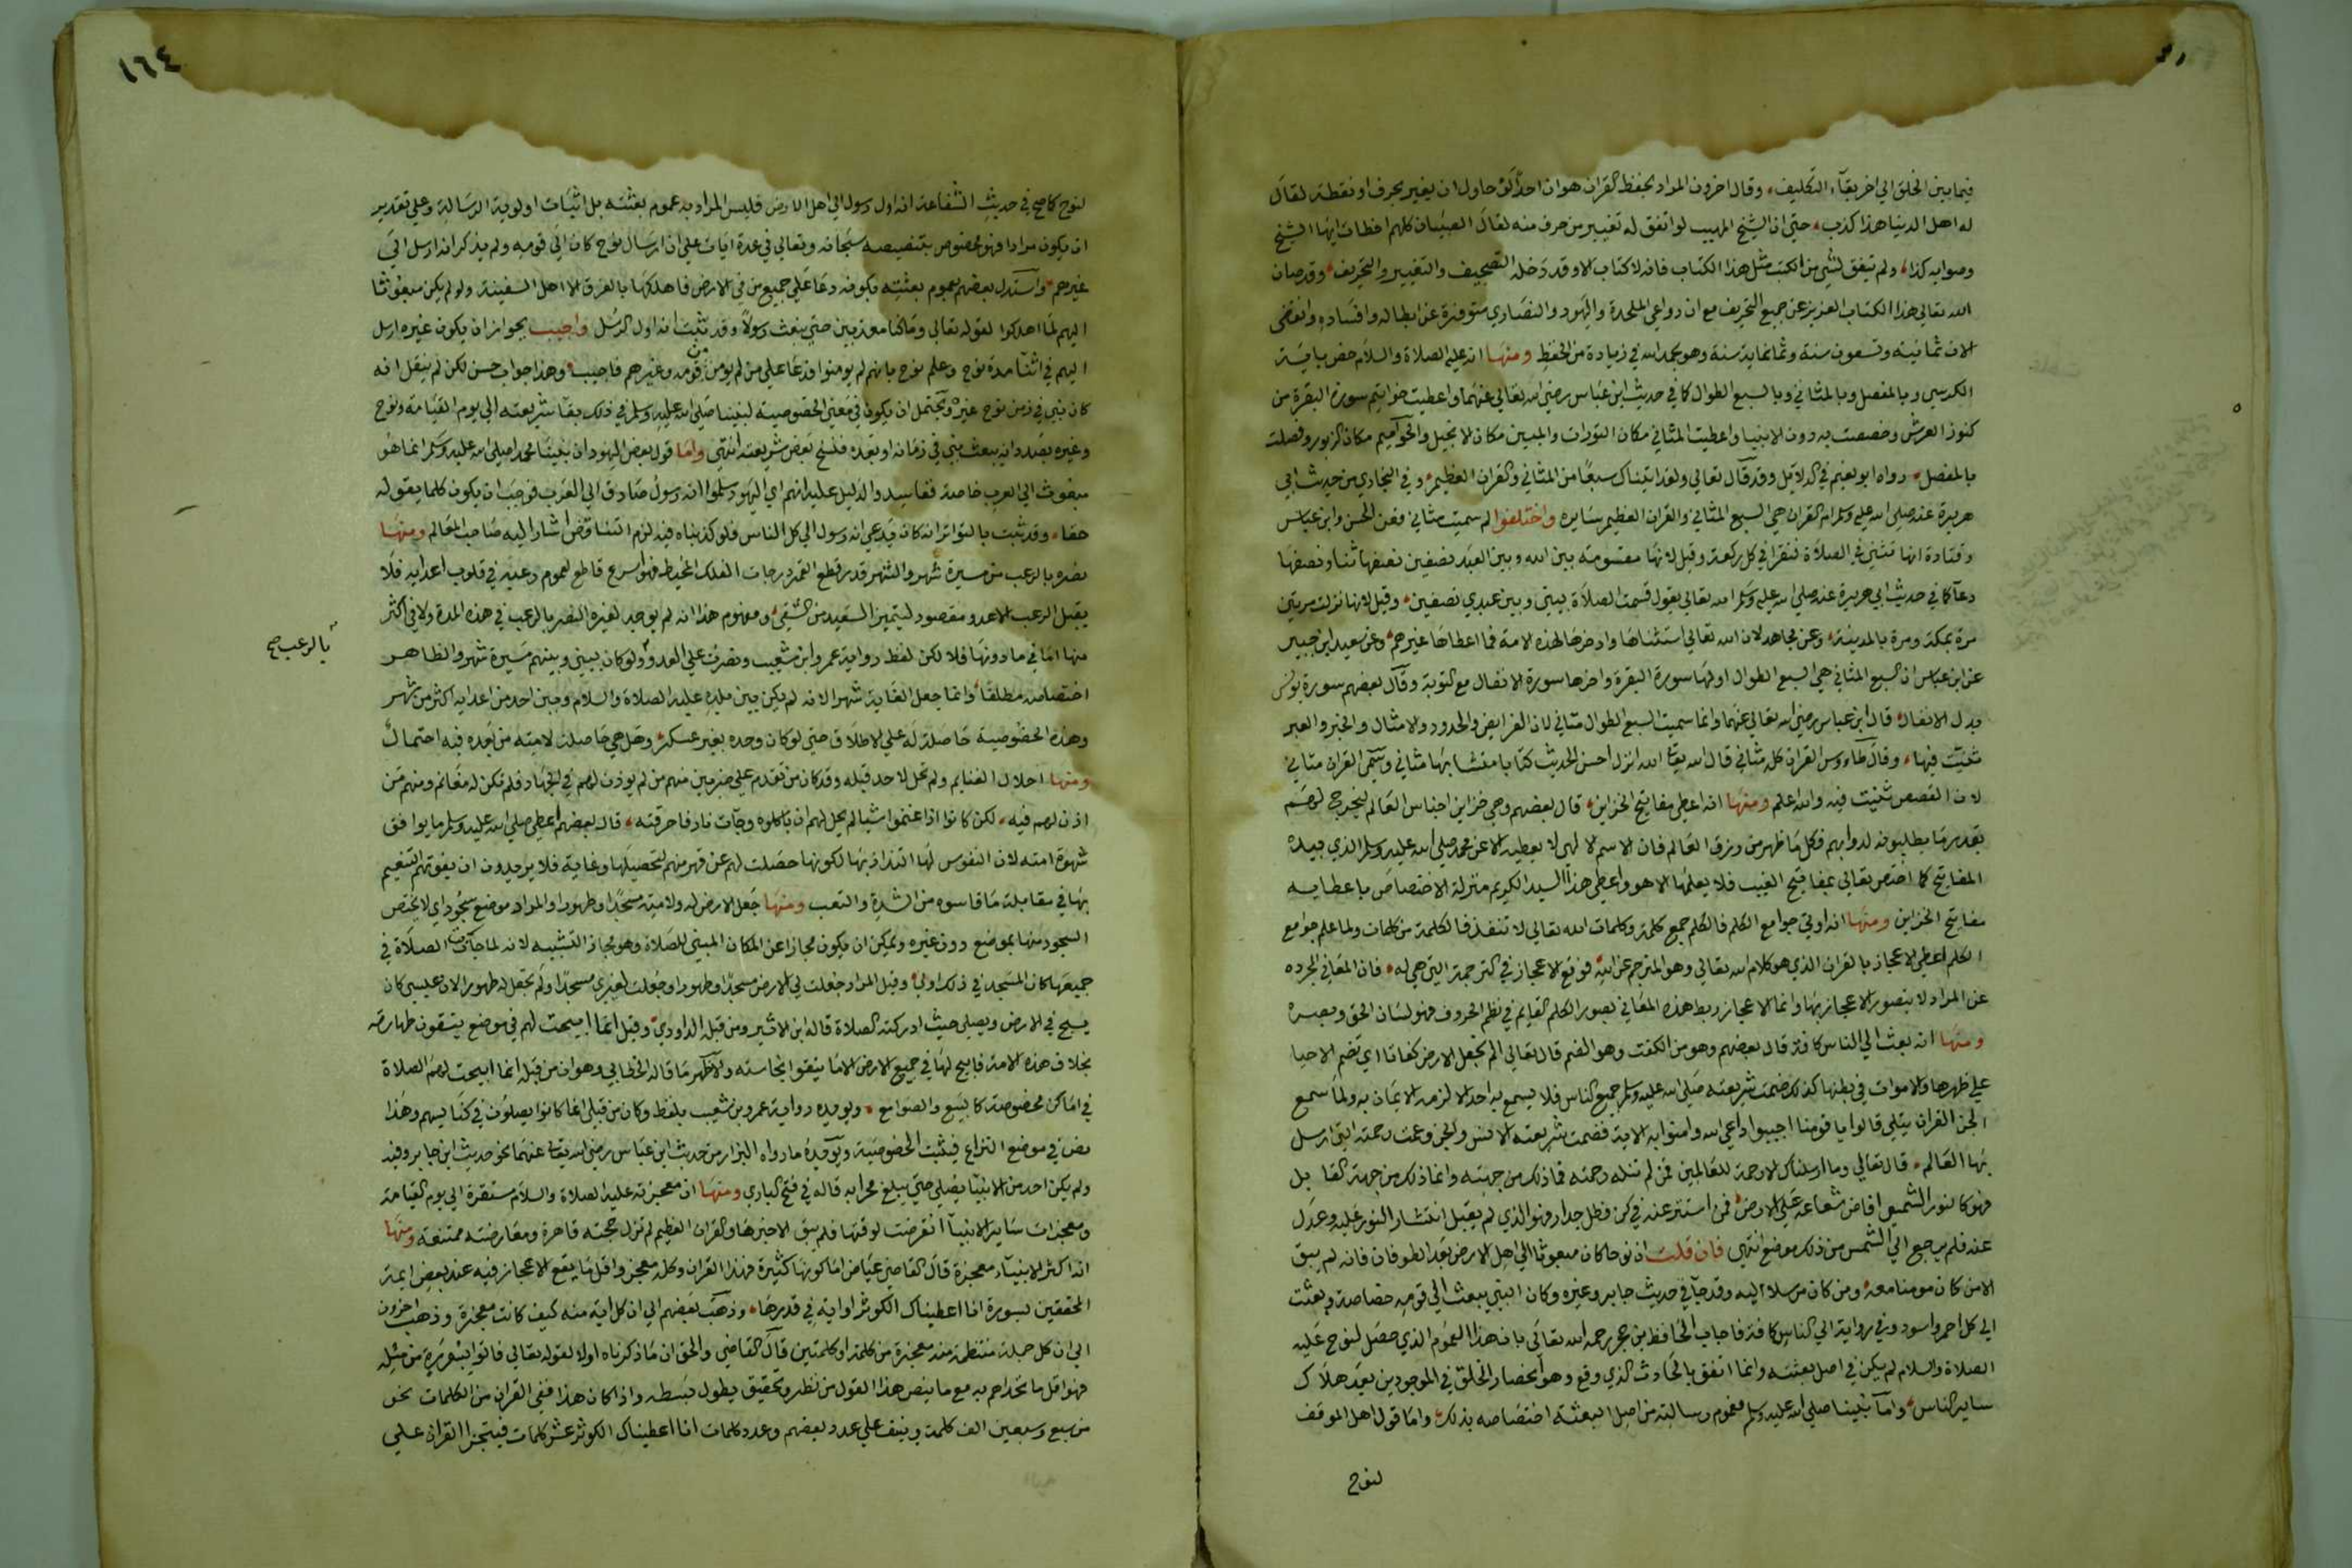 فيما بين الخلق الي اخر بقآء التكليف، وقال اخرون المراد بحفظ القران هو ان احدًا لو حاول ان يغير بحرف او نقطة لقال
له اهل الدنيا هذا كذب، حتي ان الشيخ المهيب لو اتفق له تغيير من حرف منه لقال الصبيان كلهم اخطات ايها الشيخ
وصوابه كذا، ولم يتفق لشي من الكتب مثل هذا الكتاب فانه لا كتاب الا وقد دخله التصحيف والتغيير والتحريف، وقد صان
الله تعالي هذا الكتاب العزيز عن جميع التحريف مع ان دواعي الملحدة واليهود والنصاري متوفرة عن ابطاله وافساده وانقضي
الان ثمانية وتسعون سنة وثمانماية سنة وهو بحمد الله في زيادة من الحفظ ومنها انه عليه الصلاة والسلام خص باية
الكرسي وبالمفصل وبالمثاني وبالسبع الطوال كما في حديث ابن عباس رضي الله تعالي عنهما واعطيت خواتيم سورة البقرة من
كنوز العرش وخصصت به دون الانبيا واعطيت المثاني مكان التورات والمبين مكان الانجيل والحواميم مكان الزبور وفضلت
بالمفصل، رواه ابو نعيم في الدلايل وقد قال تعالي ولقد اتيناك سبعًا من المثاني والقران العظيم، وفي البخاري من حديث ابي
هريرة عنه صلي الله عليه وسلم ام القران هي السبع المثاني والقران العظيم سايره واختلفوا لم سميت مثاني فعن الحسن وابن عباس
وقتادة انها تثني في الصلاة فتقرا في كل ركعة وقيل لانها مقسومة بين الله وبين العبد نصفين نصفها ثنا ونصفها
دعا كما في حديث ابي هريرة عنه صلي الله عليه وسلم الله تعالي يقول قسمت الصلاة بيني وبين عبدي نصفين، وقيل لانها نزلت مرتين
مرة بمكة ومرة بالمدينة، وعن مجاهد لان الله تعالي استثناها وادخرها لهذه الامة فما اعطاها غيرهم، وعن سعيد ابن جبير
عن ابن عباس ان السبع المثاني هي السبع الطوال اولها سورة البقرة واخرها سورة الانفال مع التوبة وقال بعضهم سورة يونس
بدل الانفال، قال ابن عباس رضي الله تعالي عنهما وانما سميت السبع الطوال مثاني لان الفرايض والحدود والامثال والخبر والعبر
ثنيت فيها، وقال طاءوس القران كله مثاني قال الله تعا الله انزل احسن الحديث كتابا متشابها مثاني وسمي القران مثاني
لان القصص ثنيت فيه والله اعلم ومنها انه اعطي مفاتيح الخزاين، قال بعضهم وهي خزاين اجناس العالم ليخرج لهم
بقدر ما يطلبونه لدوابهم فكل ما ظهر من رزق العالم فان الاسم الالهي لا يعطيه الا عن محمد صلي الله عليه وسلم الذي بيده
المفاتيح كما اختص تعالي بمفاتيح الغيب فلا يعلمها الا هو واعطي هذا السيد الكريم منزلة الاختصاص باعطايه
مفاتيح الخزاين ومنها انه اوتي جوامع الكلم فالكلم جمع كلمة وكلمات الله تعالي لا تنفذ فالكلمة من كلمات ولما علم جوامع
الكلم اعطي الاعجاز بالقران الذي هو كلام الله تعالي وهو المترجم عن الله، فوقع الاعجاز في الترجمة التي هي له، فان المعاني المجرده
عن المراد لا يتصور الاعجاز بها وانما الاعجاز ربط هذه المعاني بصور الكلم القايم في نظم الحروف فهو لسان الحق وبصره
ومنها انه بعث الي الناس كافة قال بعضهم وهو من الكفت وهو الضم قال تعالي الم نجعل الارض كفاتا اي تضم الاحيا
علي ظهرها والاموات في بطنها كذلك ضمت شريعته صلي الله عليه وسلم جميع الناس فلا يسمع به احد الا لزمه الايمان به ولما سمع
الجن القران يتلي قالوا يا قومنا اجيبوا داعي الله وامنوا به الاية فضمت شريعته الانس والجن وعمت رحمته التي ارسل
بها العالم، قال تعالي وما ارسلناك الا رحمة للعالمين فمن لم تنله رحمته فما ذلك من جهته وانما ذلك من جهة القابل
فهو كالنور الشمسي افاض شعاعه علي الارض، فمن استتر عنه في كن فظل جدار فهو الذي لم يقبل انتشار النور عليه وعدل
عنه فلم يرجع الي الشمس من ذلك موضع انتهي فان قلت ان نوحا كان مبعوثا الي اهل الارض بعد الطوفان فانه لم يبق
الا من كان مومنا معه، ومن كان مرسلا اليه وقد جآ في حديث جابر وغيره وكان النبي يبعث الي قومه خصاصة وبعثت
الي كل احمر واسود وفي رواية الي الناس كافة فاجاب الحافظ بن حجر رحمه الله تعالي بان هذا العموم الذي حصل لنوح عليه
الصلاة والسلام لم يكن في اصل بعثته وانما اتفق بالحادث الذي وقع وهو انحصار الخلق في الموجودين بعد هلاك
ساير الناس، واما نبينا صلي الله عليه وسلم فعموم رسالته من اصل البعثة اختصاصه بذلك، واما قول اهل الموقف
لنوح
١٦٤
لنوح كما صح في حديث الشفاعة انه اول رسول الي اهل الارض فليس المراد به عموم بعثته بل اثبات اولوية الرسالة وعلي تقدير
ان يكون مرادا فهو مخصوص بتنصيصه سبحانه وتعالي في عدة ايات علي ان ارسال نوح كان الي قومه ولم يذكر انه ارسل الي
غيرهم، واستدل بعضهم بعموم بعثته بكونه دعا علي جميع من في الارض فاهلكها بالغرق الا اهل السفينة ولو لم يكن مبعوثا
اليهم لما اهلكوا لقوله تعالي وما كنا معذبين حتي نبعث رسولًا وقد ثبت انه اول الرسل واجيب بجواز ان يكون غيره ارسل
اليهم في اثنا مدة نوح وعلم نوح بانهم لم يومنوا فدعا علي من لم يومن من قومه وغيرهم فاجيب، وهذا جواب حسن لكن لم ينقل انه
كان نبي في زمن نوح غيره ويحتمل ان يكون في معني الخصوصية لنبينا صلي الله عليه وسلم في ذلك بقا شريعته الي يوم القيامة ونوح
وغيره بصدد انه يبعث نبي في زمانه او بعده فنسخ بعض شريعته انتهي واما قول بعض اليهود ان نبينا محمد اصلي الله عليه وسلم انما هو
مبعوث الي العرب خاصة ففاسد والدليل عليه انهم اي اليهود سلموا انه رسول صادق الي العرب فوجب ان يكون كلما يقوله
حقا، وقد ثبت بالتواتر انه كان يدعي انه رسول الي كل الناس فلو كذبناه فيه لزم التناقض اشار اليه صاحب المعالم ومنها
نصره بالرعب من مسيرة شهر والشهر قدر قطع القمر درجات الفلك المحيط فهو اسرع قاطع لعموم رعبه في قلوب اعدايه فلا
يقبل الرعب الا عدو مقصود ليتميز السعيد من الشقي، ومفهوم هذا انه لم يوجد لغيره النصر بالرعب في هذه المدة ولا في اكثر
منها اما في ما دونها فلا لكن لفظ رواية عمر وابن شعيب ونصرت علي العدو ولو كان بيني وبينهم مسيرة شهر والظاهر
بالرعب صح
اختصاصه مطلقًا، وانما جعل الغاية شهر الانه لم يكن بين بلده عليه الصلاة والسلام وبين احد من اعدايه اكثر من شهر
وهذه الخصوصية حاصلة له علي الاطلاق حتي لو كان وحده بغير عسكر، وهل هي حاصلة لامته من بعده فيه احتمال
ومنها احلال الغنايم ولم تحل لاحد قبله وقد كان من تقدم علي ضربين منهم من لم يوذن لهم في الجهاد فلم تكن له مغانم ومنهم من
اذن لهم فيه، لكن كانوا اذا غنموا شيا لم يحل لهم ان ياكلوه وجآت نار فاحرقته، قال بعضهم اعطي صلي الله عليه وسلم ما يوافق
شهوة امته لان النفوس لها التذاذ بها لكونها حصلت لهم عن قهر منهم لتحصيلها وغاية فلا يريدون ان يفوتهم التنعيم
بها في مقابلة ما قاسوه من الشدة والتعب ومنها جعل الارض له ولامته مسجدًا وطهورا والمراد موضع سجود اي لا يختص
السجود منها بموضع دون غيره ويمكن ان يكون مجازا عن المكان المبني للصلاة وهو مجاز التشبيه لانه لما جآت الصلاة في
جميعها كان المسجد في ذلك اولي، وقيل المراد جعلت لي الارض مسجدًا وطهورا وجعلت لغيري مسجدًا ولم تجعل له طهورا لان عيسي كان
يسيح في الارض ويصلي حيث ادركته الصلاة قاله ابن الاثير ومن قبله الداودي، وقيل انما ابيحت لهم في موضع يتيقنون طهارته
بخلاف هذه الامة فابيح لها في جميع الارض الا ما يتيقنوا نجاسته والاظهر ما قاله الخطابي وهو ان من قبله انما ابيحت لهم الصلاة
في اماكن مخصوصة كالبيع والصوامع، ويويده رواية عمرو بن شعيب بلفظ وكان من قبلي انما كانوا يصلون في كنايسهم وهذا
نص في موضع النزاع فيثبت الخصوصية ويويده ما رواه البزار من حديث ابن عباس رضي الله تعا عنهما نحو حديث ابن جابر وفيه
ولم يكن احد من الانبيا يصلي حتي يبلغ محرابه قاله في فتح الباري ومنها ان معجزته عليه الصلاة والسلام مستقرة الي يوم القيامة
ومعجزات ساير الانبيآ انقرضت لوقتها فلم يبق الا خبرها والقران العظيم لم تزل حجته قاهرة ومعارضته ممتنعة ومنها
انه اكثر الانبيآء معجزة قال القاضي عياض اما كونها كثيرة فهذا القران وكله معجز واقل ما يقع الاعجاز فيه عند بعض ايمة
المحققين بسورة انا اعطيناك الكوثر او اية في قدرها، وذهب بعضهم الي ان كل اية منه كيف كانت معجزة وذهب اخرون
الي ان كل جملة منتظمة منه معجزة من كلمة او كلمتين قال القاضي والحق ان ما ذكرناه اولا لقوله تعالي فاتوا بسورة من مثله
فهو اقل ما تحداهم به مع ما ينصر هذا القول من نظر وتحقيق يطول بسطه واذا كان هذا ففي القران من الكلمات نحو
من سبع وسبعين الف كلمة ونيف علي عدد بعضهم وعدد كلمات انا اعطيناك الكوثر عشر كلمات فيتجزا القران علي